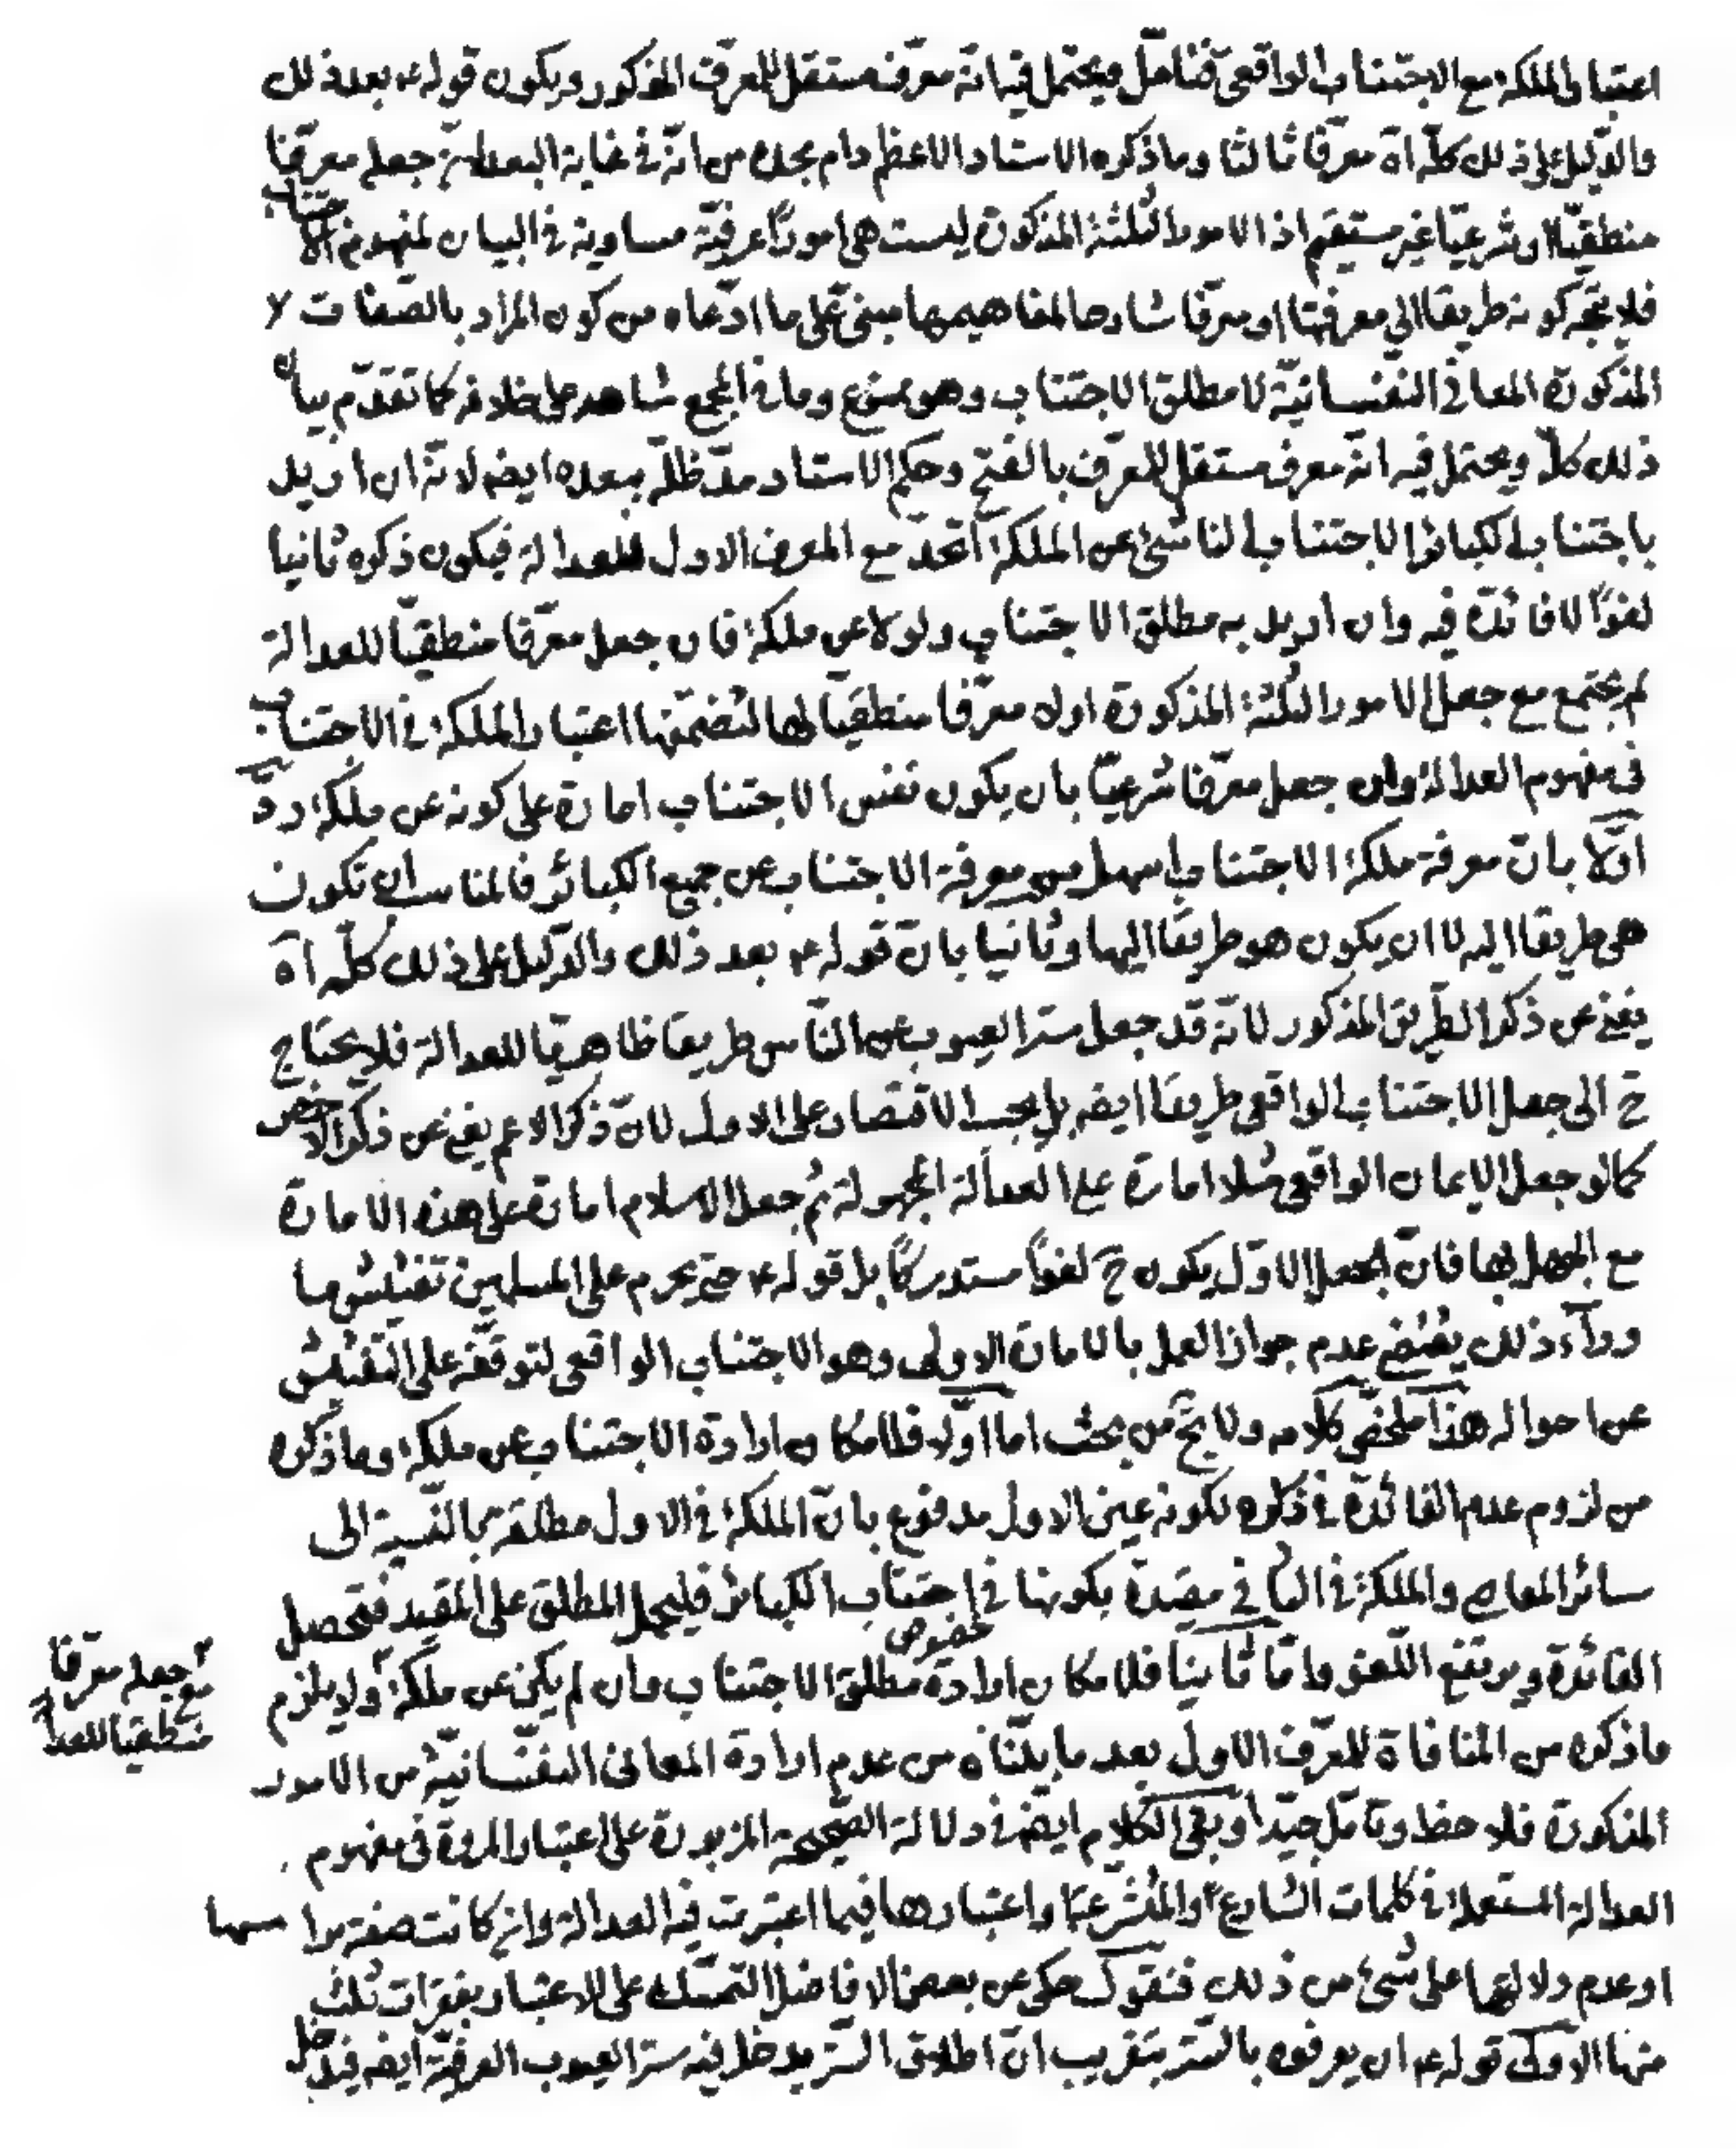 اعتبار الملكة مع الاجتناب الواقعى فتامل ويحتمل فيه انه معرف مستقل للمعرف المذكور ويكون قوله ع بعد ذلك
والدّليل على ذلك كلّه اه معرّفا ثالثا وما ذكره الاستاد الاعظم دام مجده من انّه فى غاية البعد لانّ جعله معرّفا
منطقيّا او شرعيّا غير مستقيم اذ الامور الثلثة المذكورة ليست هى امورًا عرفيّة مساوية فى البيان لمفهوم الاجتناب
فلا يتّجه كونه طريقا الى معرفتها او معرّفا شارحا لمفاهيمها مبنىّ على ما ادّعاه من كون المراد بالصّفات
المذكورة المعانى النّفسانيّة لا مطلق الاجتناب وهو ممنوع وما فى المجمع شاهد على خلافه كما تقدّم بيان
ذلك كلّه ويحتمل فيه انّه معرف مستقل للمعرّف بالفتح وحكم الاستاد مدّ ظلّه ببعده ايضا لانّه ان اريد
باجتناب الكبائر الاجتناب الناشئ عن الملكة اتّحد مع المعرف الاول للعدالة فيكون ذكره ثانيا
لغوًا لا فائدة فيه وان اريد به مطلق الاجتناب ولو لا عن ملكة فان جعل معرّفا منطقيّا للعدالة
لم يجتمع مع جعل الامور الثلثة المذكورة اولا معرّفا منطقيّا لها لتضمّنها اعتبار الملكة فى الاجتناب
فى مفهوم العدالة وان جعل معرّفا شرعيّا بان يكون نفس الاجتناب امارة على كونه عن ملكة ردّ
اوّلا بانّ معرفة ملكة الاجتناب اسهل من معرفة الاجتناب عن جميع الكبائر فالمناسب ان تكون
هى طريقا اليه لا ان يكون هو طريقا اليها وثانيا بانّ قوله ع بعد ذلك والدّليل على ذلك كلّه اه
يغنى عن ذكر الطّريق المذكور لانّه قد جعل ستر العيوب عن النّاس طريقا ظاهريّا للعدالة فلا يحتاج
ح الى جعل الاجتناب الواقعى طريقا ايضا بل يجب الاقتصار على الاول لانّ ذكر الاعم يغنى عن ذكر الاخص
كما لو جعل الايمان الواقعى مثلا امارة على العدالة المجهولة ثم جعل الاسلام امارة على هذه الامارة
مع الجهل بها فانّ الجعل الاوّل يكون ح لغوًا مستدركًا بل قوله ع حتى يحرم على المسلمين تفتيش ما
وراء ذلك يقتضى عدم جواز العمل بالامارة الاولى وهو الاجتناب الواقعى لتوقّفه على التّفتيش
عن احواله هذا ملخّص كلامه ولا يخ من بحث اما اوّلا فلامكان ارادة الاجتناب عن ملكة وما ذكره
من لزوم عدم الفائدة فى ذكره لكونه عين الاول مدفوع بانّ الملكة فى الاول مطلقة بالنّسبة الى
سائر المعاصى والملكة فى الثانى مقيّدة بكونها فى اجتناب الكبائر فليحمل المطلق على المقيد فتحصل
الفائدة ويرتفع اللّغو وامّا ثانيا فلامكان ارادة خصوص مطلق الاجتناب وان لم يكن عن ملكة ولا يلزم
مع جعله معرّفا
منطقيا للعدالة
ما ذكره من المنافاة للمعرّف الاول بعد ما بيّنّاه من عدم ارادة المعانى النفسانيّة من الامور
المذكورة فلاحظ وتامّل جيّدا وبقى الكلام ايضا فى دلالة الصّحيحة المزبورة على اعتبار المروة فى مفهوم
العدالة المستعملة فى كلمات الشارع والمتشرعة او اعتبارها فيما اعتبرت فيه العدالة وان كانت صفة براسها
او عدم دلالتها على شئ من ذلك فنقول حكى عن بعض الافاضل التمسّك على الاعتبار بفقرات ثلث
منها الاولى قوله ع ان يعرفوه بالستر بتقريب انّ اطلاق السّتر يدخل فيه ستر العيوب العرفيّة ايضا فيدل